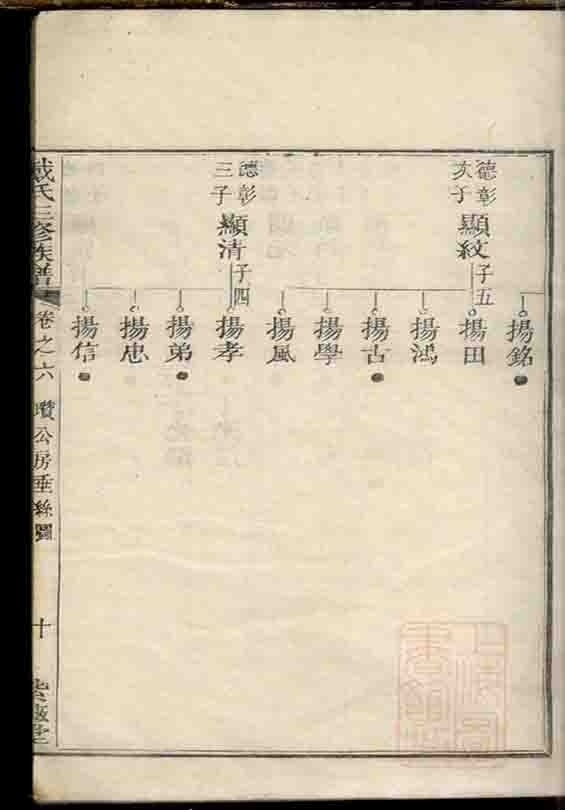 揚銘
德彰
亥子
顯紋
子五
揚田
揚鴻
揚古
揚學
揚風
德彰
三子
顯清
子四
揚孝
揚弟
揚忠
揚信
戴氏三修族譜
卷之六
瓚公房垂絲圖
十